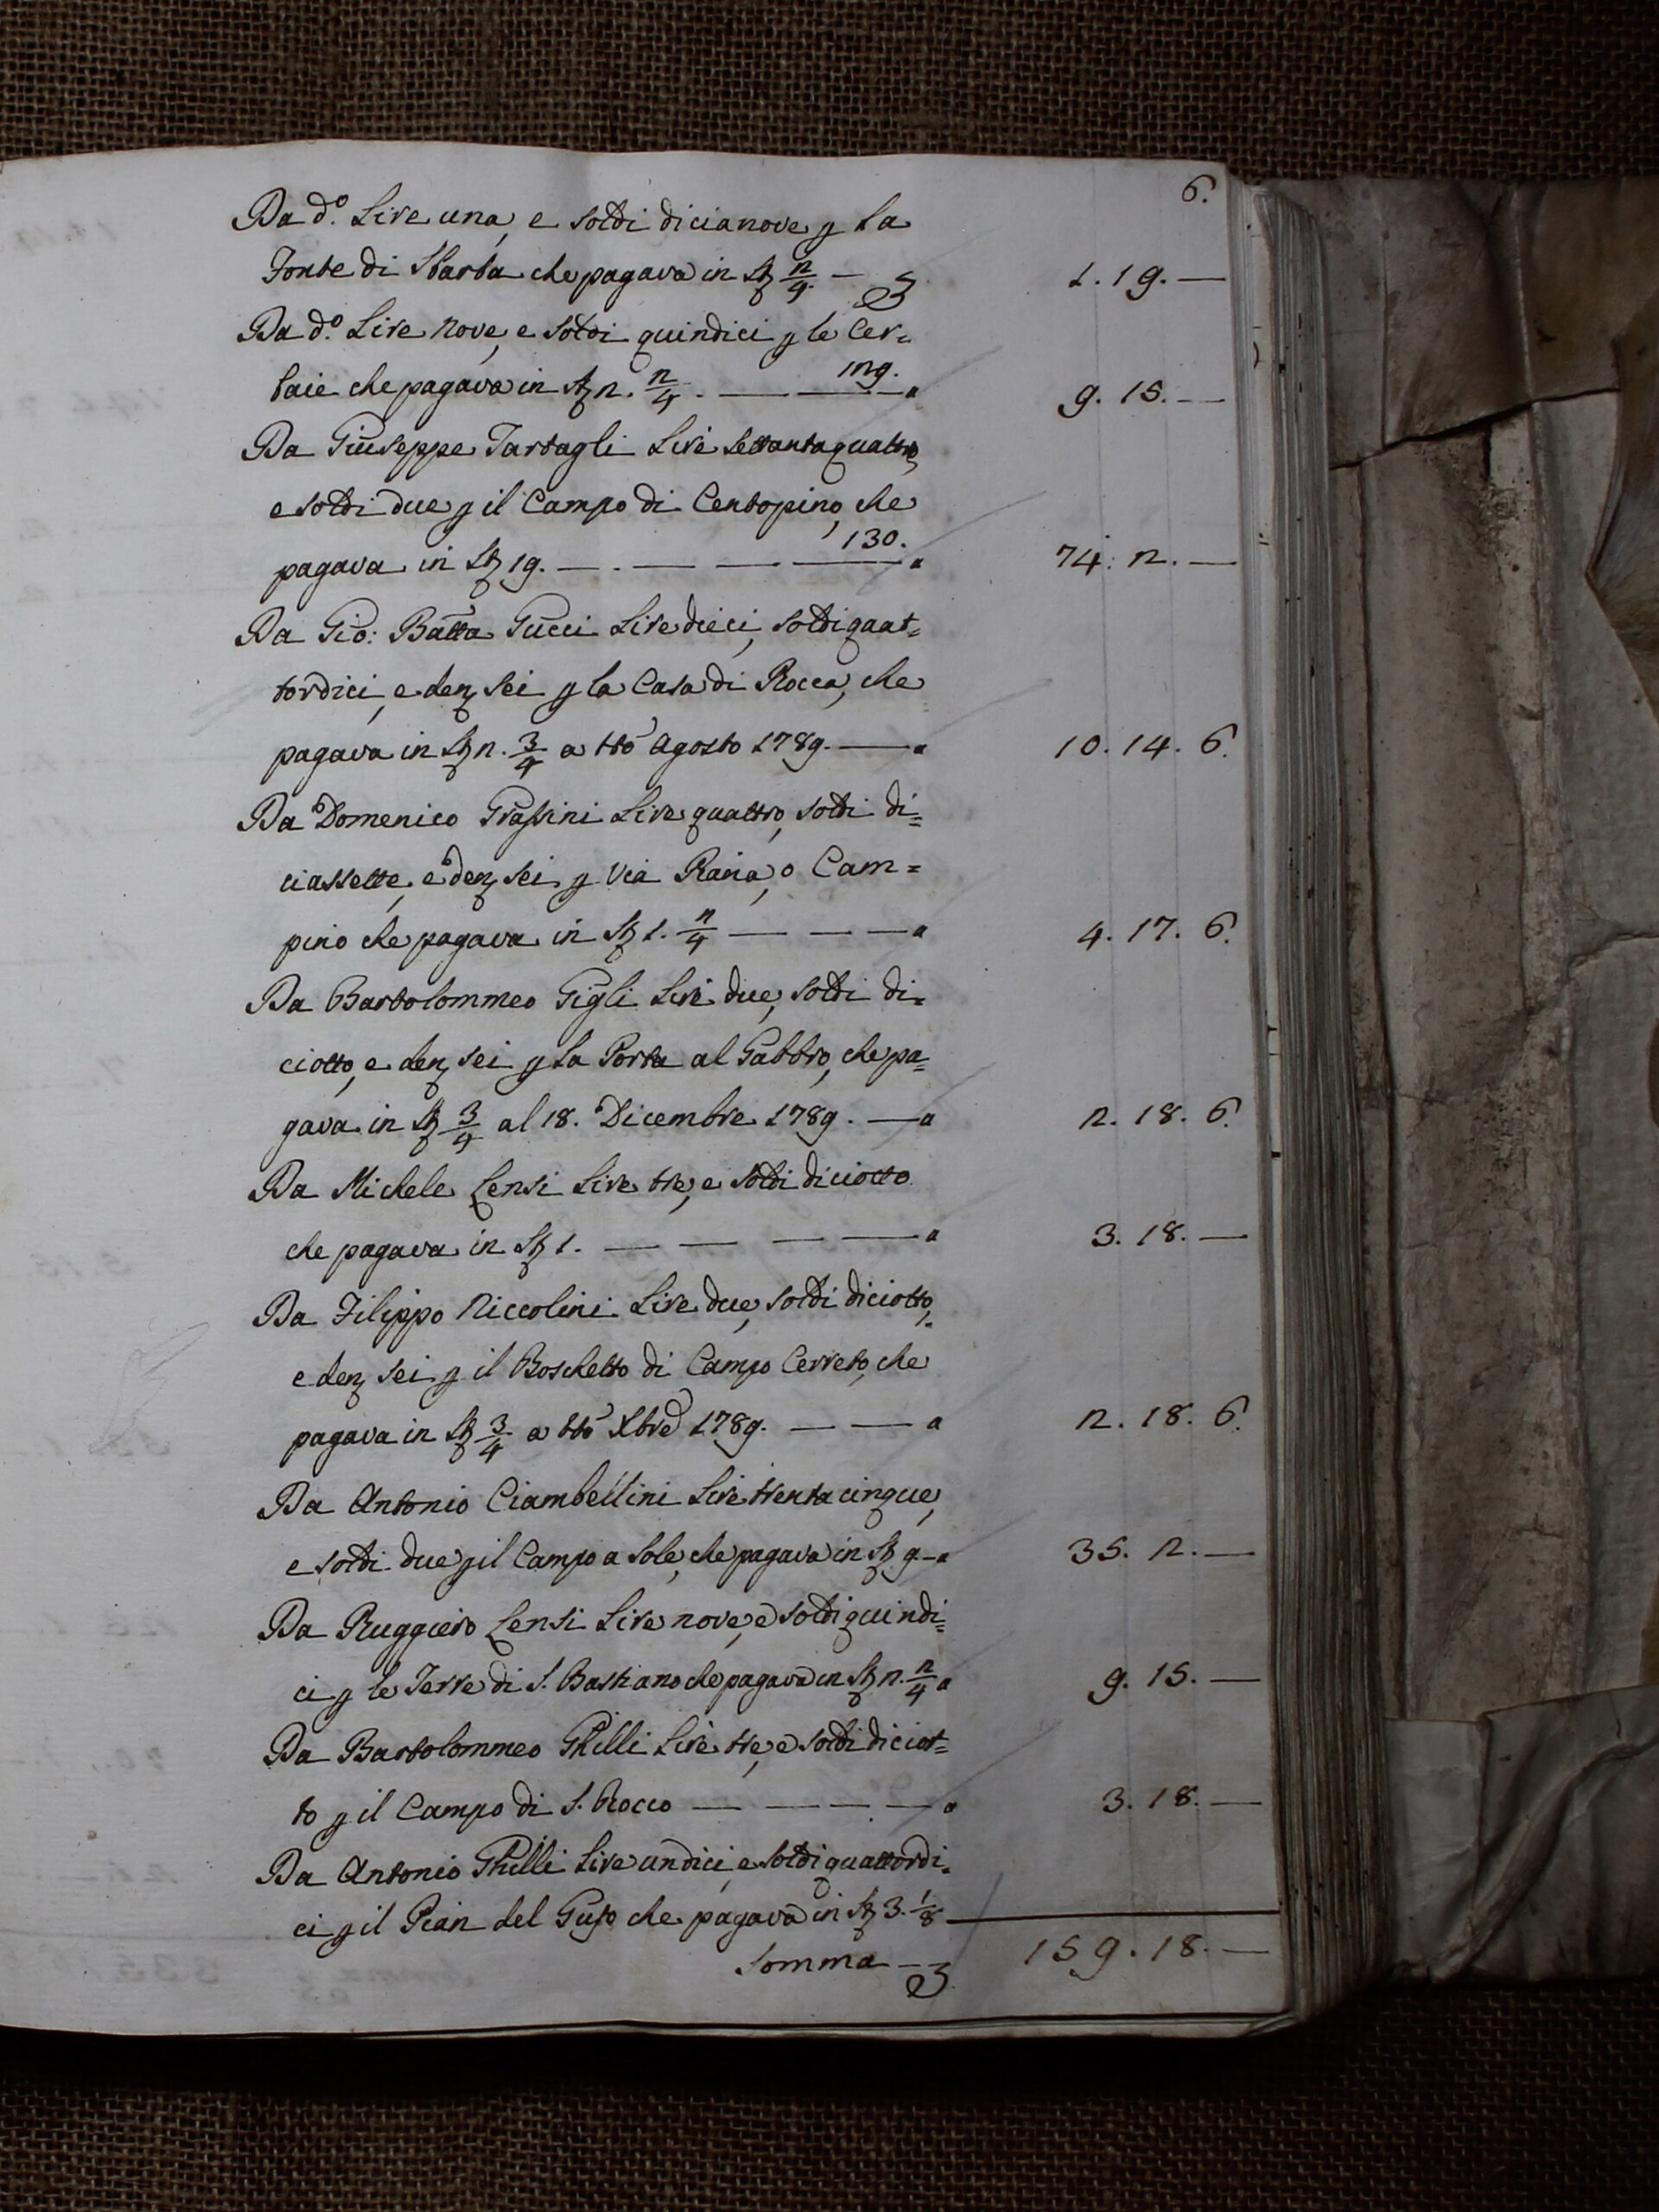 6.
Da d.º Lire una, e soldi dicianove p la
Fonte di Sbarba che pagava in St 2/4 — 1. 19. —
Da d.º Lire nove, e soldi quindici p le Cer=
baie che pagava in St 2. 2/4. — — 129. 9. 15. —
Da Giuseppe Tartagli Lire settantaquattro,
e soldi due p il Campo di Centopino, che
pagava in St 19. — . — — — 130. a 74. 2. —
Da Gio: Batta Gucci Lire dieci, soldi quat=
tordici, e den sei p la Casa di Rocca, che
pagava in St 2. 3/4 a tto Agosto 1789. — a 10. 14. 6.
Da Domenico Grassini Lire quattro, soldi di=
ciassette, e den sei p Via Piana, o Cam=
pino che pagava in St 1. 2/4 — — — a 4. 17. 6.
Da Bartolommeo Gigli Lire due, soldi di=
ciotto, e den sei p la Porta al Gabbro, che pa=
gava in St 3/4 al 18. Dicembre 1789. — a 2. 18. 6.
Da Michele Lensi Lire tre, e soldi diciotto
che pagava in St 1. — — — — a 3. 18. —
Da Filippo Niccolini Lire due, soldi diciotto,
e den sei p il Boschetto di Campo Cerreto, che
pagava in St 3/4 a tto Xbre 1789. — — a 2. 18. 6.
Da Antonio Ciambellini Lire trenta cinque,
e soldi due p il Campo a Sole, che pagava in St 9 — a 35. 2. —
Da Ruggiero Lensi Lire nove, e soldi quindi=
ci p le Terre di S. Bastiano che pagava in St 2. 2/4 a 9. 15. —
Da Bartolommeo Ghilli Lire tre, e soldi diciot=
to p il Campo di S. Rocco — — — — a 3. 18. —
Da Antonio Ghilli Lire undici, e soldi quattordi=
ci p il Pian del che pagava in St 3. 1/8
Somma — 159. 18. —